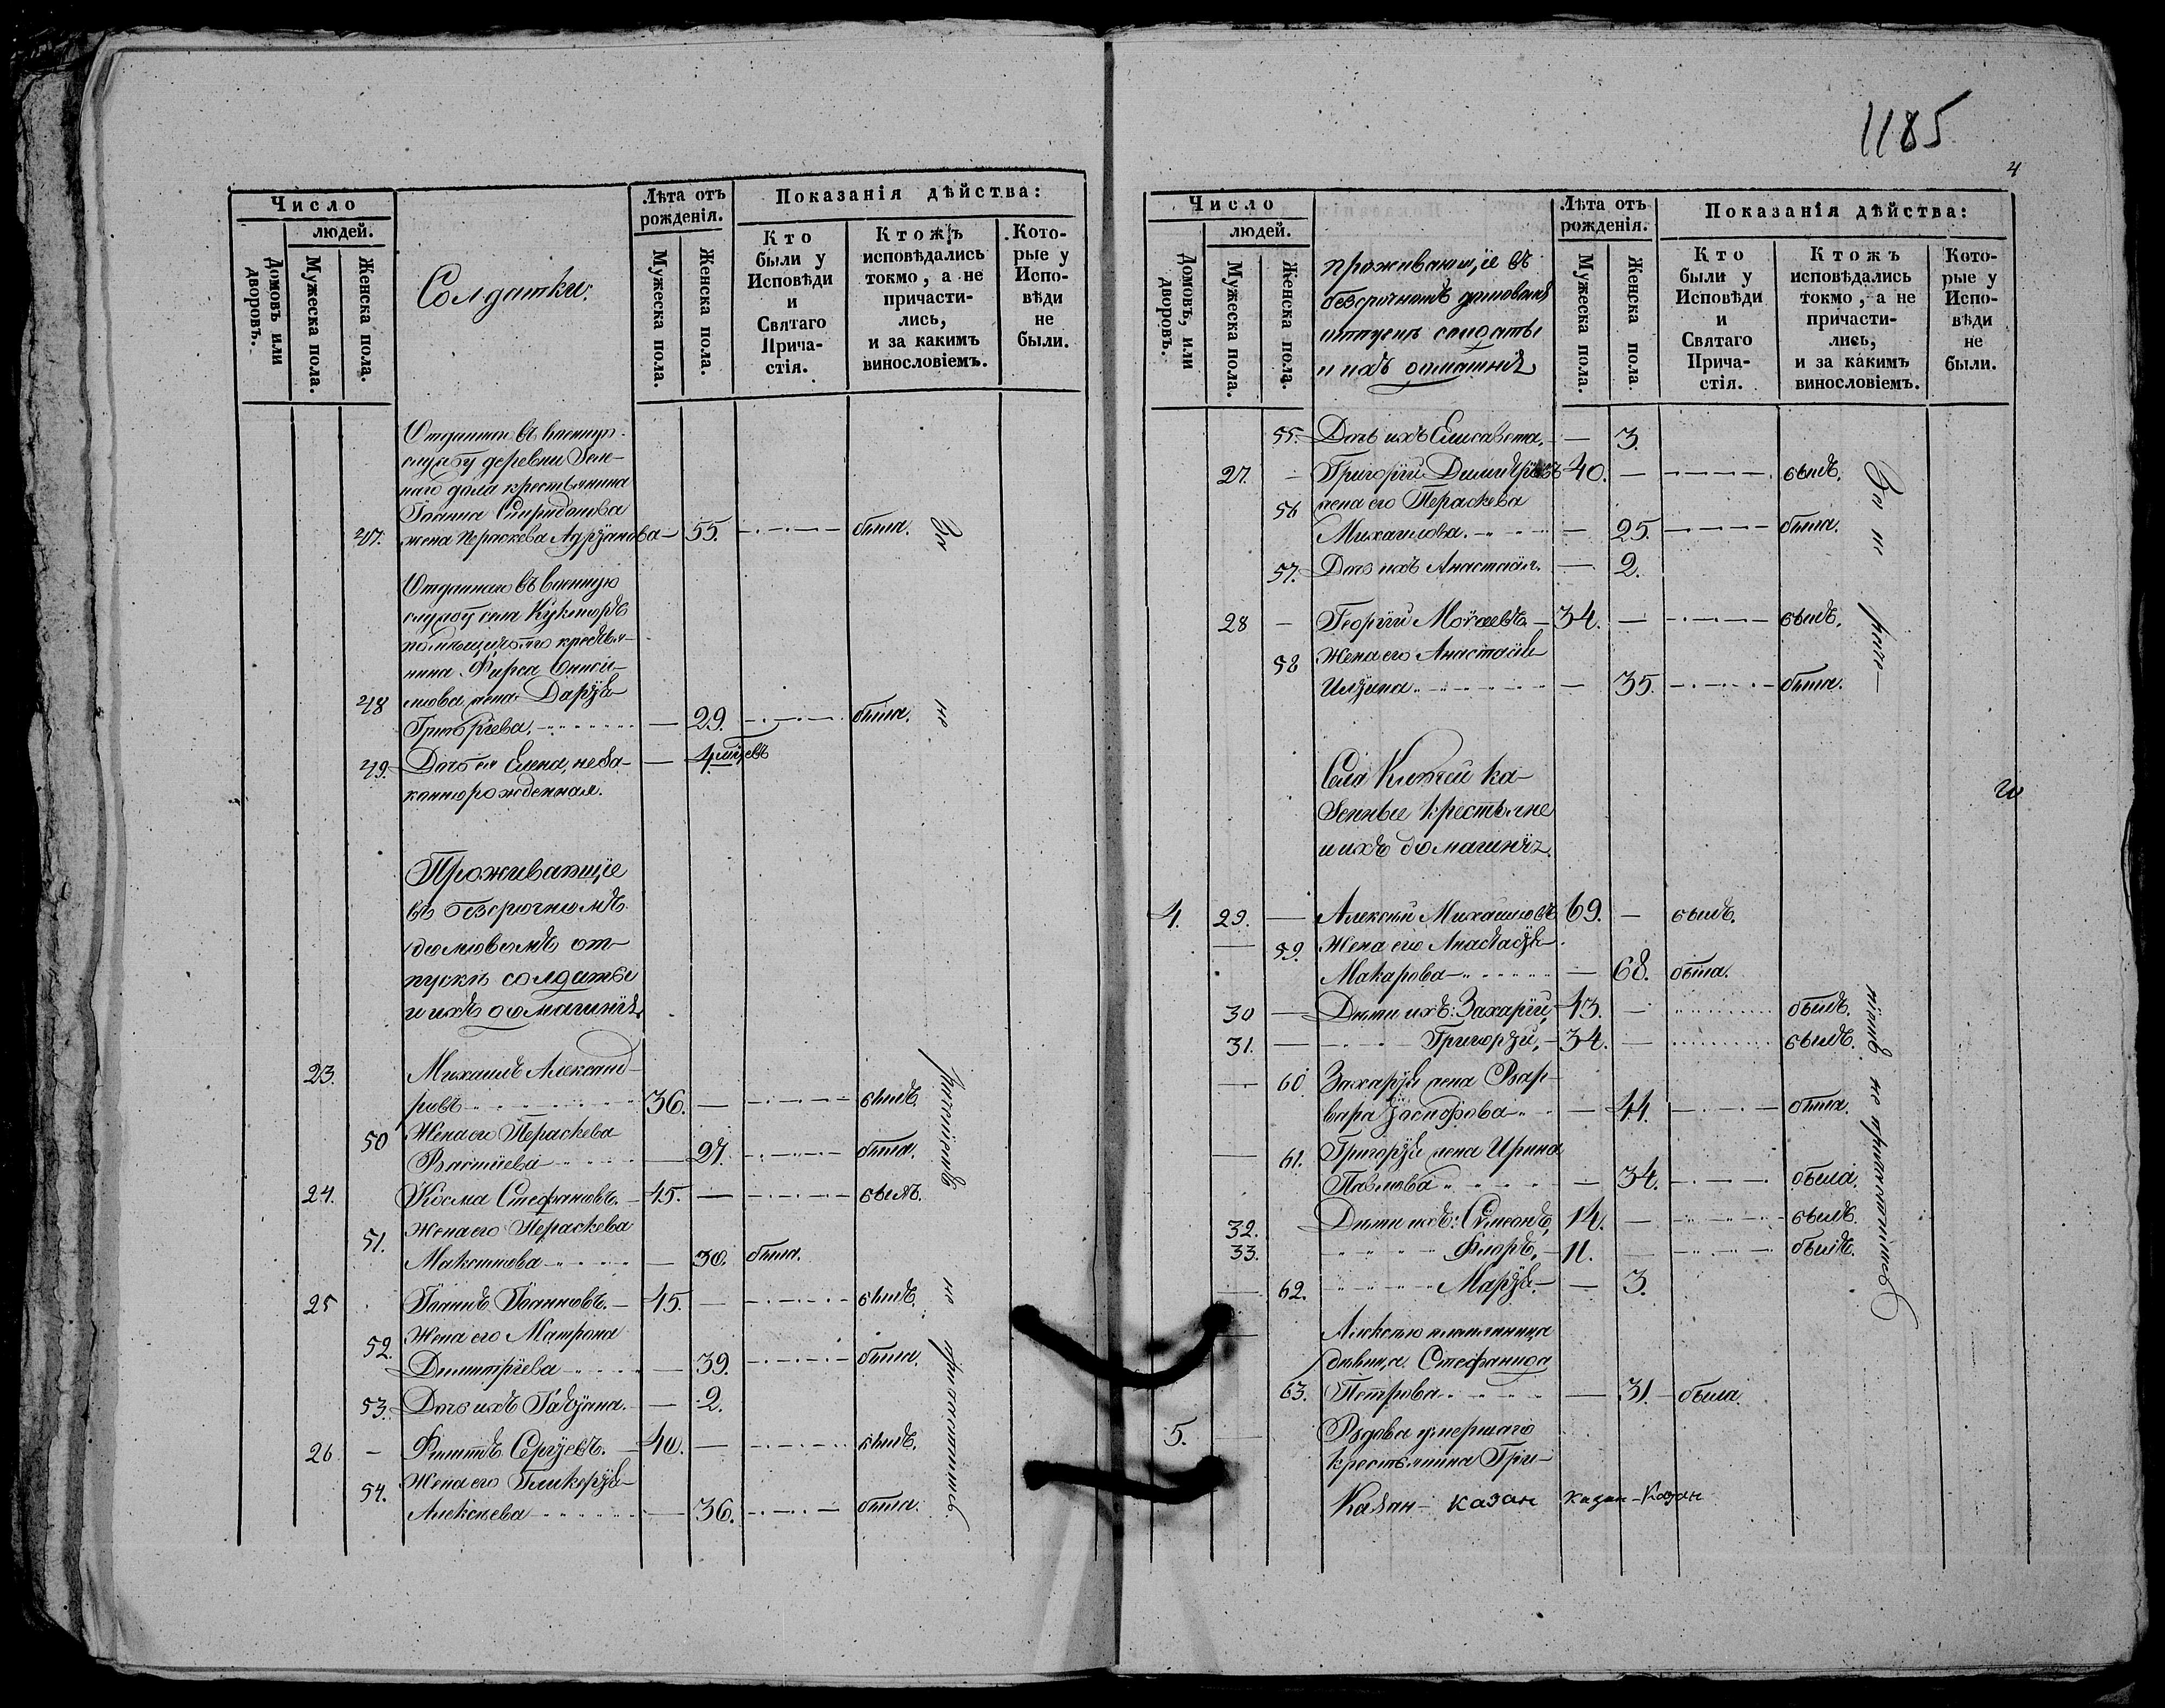 Число
людей.
Домовъ или дворовъ.
Мужеска пола.
Женска пола.
Солдатки.
Лѣта отъ рожденія.
Мужеска пола.
Женска пола.
Показанія дѣйства:
Кто были у Исповѣди и Святаго Прича-стія.
Ктожъ исповѣдались токмо, а не причасти-лись, и за какимъ винословіемъ.
Кото-рые у Испо-вѣди не были.
Отданнаго въ военную
службу деревни Зеле-
наго дола крестьянина
Іоанна Спиридонова
47. жена Пераскева Адріанова — 55. была. За
Отданнаго въ военную
службу села
крестья-
нина Фирса
48 жена Дарія
Григорьева — 29. была. не
49. Дочь ея Елена, неза- — 4 мѣсяцевъ
коннорожденная.
Проживающіе
въ безсрочномъ
домовомъ от-
пускѣ солдаты
и ихъ домашніе.
23. Михаилъ Александ-
ровъ 36. — былъ.
50 Жена его Пераскева
— 27. была.
24. Косма Стефановъ. 45. — былъ.
51. Жена его Пераскева
Максимова — 30. была.
25 Іоаннъ Іоанновъ. — 45. — былъ. не
52. Жена его Матрона
Димитріева — 39. была.
53. Дочь ихъ Таѣіана. — 2.
26 — Филиппъ Сергіевъ. 40. — былъ.
54. Жена его Гликерія
Алексѣева — 36. была.
1185
4
Число
людей.
Домовъ, или дворовъ.
Мужеска пола.
Женска пола.
проживающіе въ
безсрочномъ домовомъ
отпускѣ солдаты
и ихъ домашніе
Лѣта отъ рожденія.
Мужеска пола.
Женска пола.
Показанія дѣйства:
Кто были у Исповѣди и Святаго Прича-стія.
Ктожъ исповѣдались токмо, а не причасти-лись, и за какимъ винословіемъ.
Кото-рые у Испо-вѣди не были.
55. Дочь ихъ Елисавета. — 3.
27. — Григорій Димитріевъ 40. — былъ.
56 жена его Пераскева
Михаилова. — 25. была.
57. Дочь ихъ Анастасія. — 2.
28 — Георгій Моѵсеевъ. — 34. — былъ.
58 Жена его Анастасія
Иліина — 35. была.
Села Китяй ка-
зенные крестьяне
и ихъ домашніе.
4. 29. — Алексій Михаиловъ 69. — былъ.
— 59. Жена его Анастасія
Макарова — 68. была.
30 — Дѣти ихъ: Захарій, 43. — былъ.
31. — Григорій, — 34. — былъ.
— 60 Захарія жена Вар-
вара Іосифова — 44. была.
— 61. Григорія жена Ирина
Павлова — 34. была.
32. Дѣти ихъ: Сѵмеонъ, 14. — былъ.
33. Флоръ, — 11. — былъ.
— 62. Марія. — — 3.
— Алексѣю племянница
дѣвица Стефанида
63. Петрова — 31. — была.
5. — Вдова умершаго
крестьянина Гри-
Казан- казан Казан-Казан